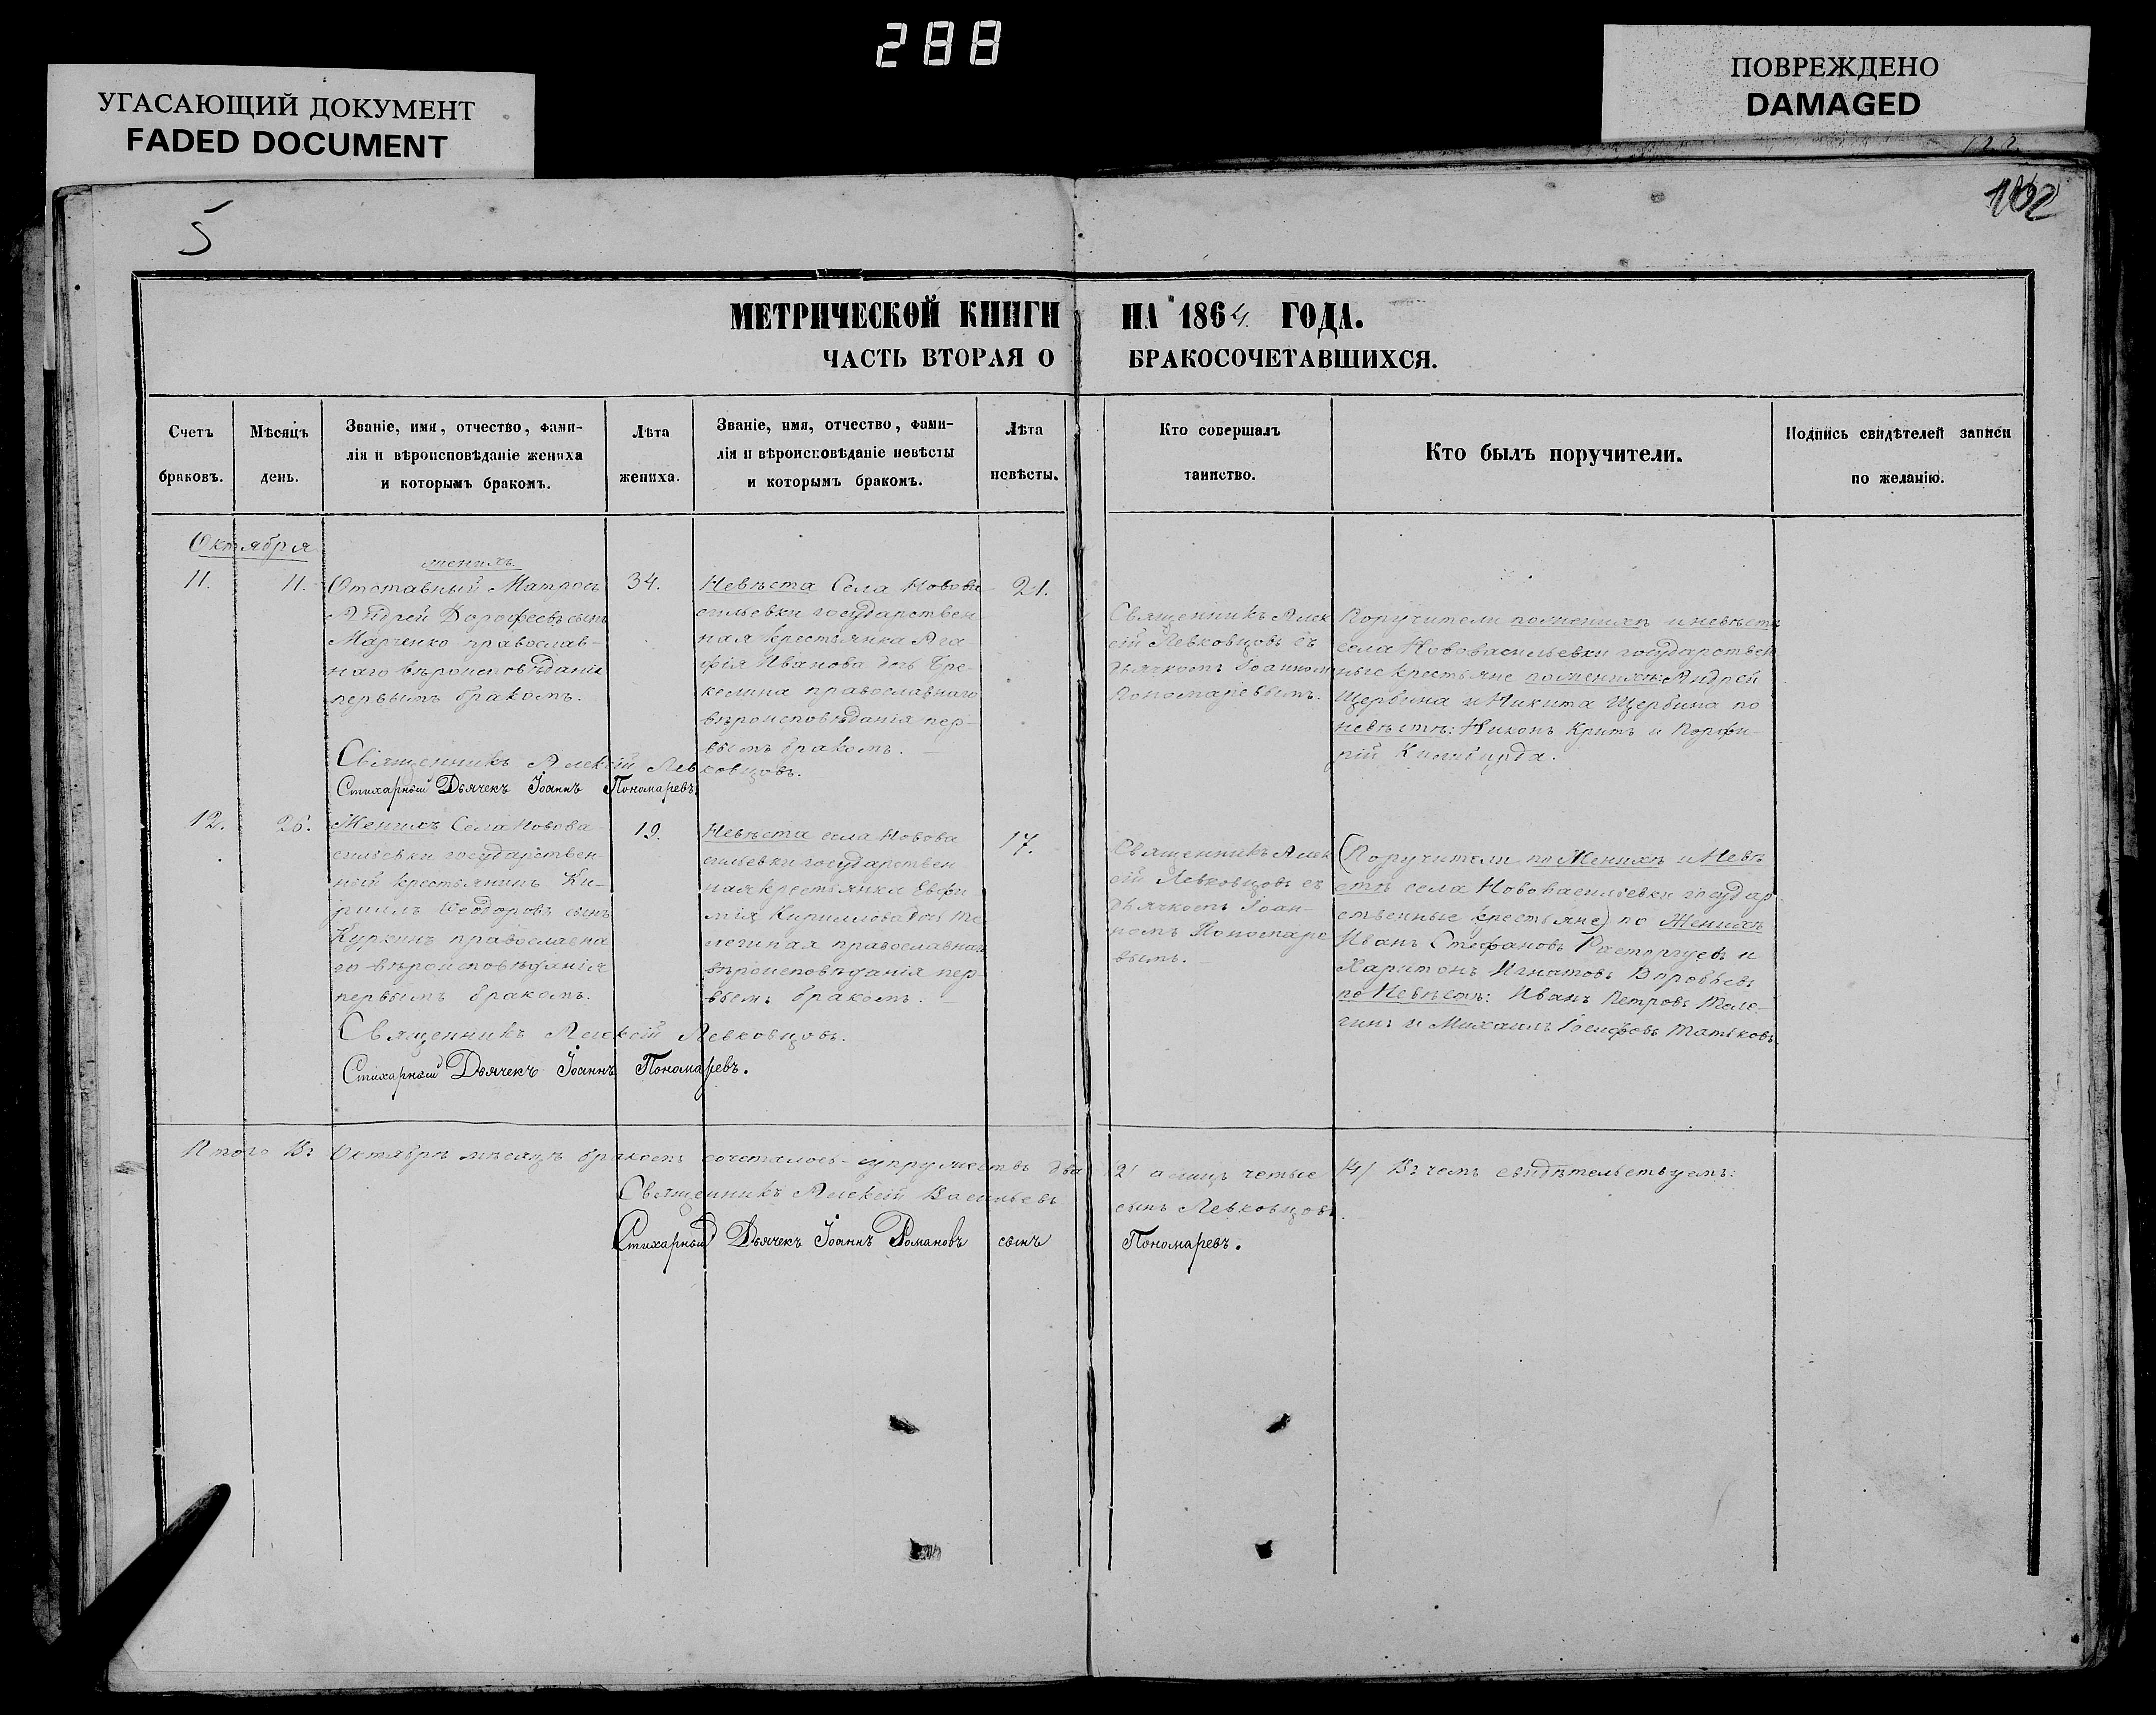 288
УГАСАЮЩИЙ ДОКУМЕНТ
FADED DOCUMENT
ПОВРЕЖДЕНО
DAMAGED
5
МЕТРИЧЕСКОЙ КНИГИ НА 1864 ГОДА.
ЧАСТЬ ВТОРАЯ О БРАКОСОЧЕТАВШИХСЯ.
Счетъ
браковъ.
Мѣсяцъ
день.
Званіе, имя, отчество, фами-
лія и вѣроисповѣданіе жениха
и которымъ бракомъ.
Лѣта
жениха.
Званіе, имя, отчество, фами-
лія и вѣроисповѣданіе невѣсты
и которымъ бракомъ.
Лѣта
невѣсты.
Кто совершалъ
таинство.
Кто былъ поручители.
Подпись свидѣтелей записи
по желанію.
Октября
11.
11.
женихъ
Отставный Матросъ
Андрей Дорофеевъ сынъ
Марченко православ-
наго вѣроисповѣданія
первымъ бракомъ.
34.
Невѣста Села Новова-
сильевки государствен
ная крестьянка Ага
фія Иванова дочь
православнаго
вѣроисповѣданія пер-
вымъ бракомъ.
21.
Священникъ Алек
сій Левковцовъ съ
дьячкомъ Іоанномъ
Пономаревымъ.
Поручители по женихѣ и невѣстѣ
села Нововасильевки государствен
ные крестьяне по женихѣ: Андрей
Щербина и Никита Щербина по
невѣстѣ: Никонъ Критъ и Порфи-
рій
Священникъ Алексій Левковцовъ.
Стихарный Дьячекъ Іоаннъ Пономаревъ.
12.
26.
Женихъ Села Новова-
сильевки государствен-
ный крестьянинъ Ки-
риллъ Феодоровъ сынъ
Куркинъ православна
го вѣроисповѣданія
первымъ бракомъ.
19.
Невѣста села Новова
сильевки государствен
ная крестьянка Евфи
мія Кириллова дочь Те
легиная православнаго
вѣроисповѣданія пер
вымъ бракомъ.
17.
Священникъ Алек
сій Левковцовъ съ
дьячкомъ Іоан-
номъ Пономаре
вымъ.
(Поручители по Женихѣ и Невѣ
стѣ села Нововасильевки государ
ственные крестьяне) по Женихѣ
Иванъ Стефановъ Расторгуевъ и
Харитонъ Игнатовъ Воробьевъ
по Невѣстѣ: Иванъ Петровъ Теле-
гинъ и Михаилъ Матьковъ.
Священникъ Алексій Левковцовъ.
Стихарный Дьячекъ Іоаннъ Пономаревъ.
Итого Въ Октябрѣ мѣсяцѣ бракомъ сочеталось супружествъ два /2/ а лицъ четыре /4/ Въ чемъ свидѣтельствуемъ:
Священникъ Алексій Васильевъ сынъ Левковцовъ.
Стихарный Дьячекъ Іоаннъ Романовъ сынъ Пономаревъ.